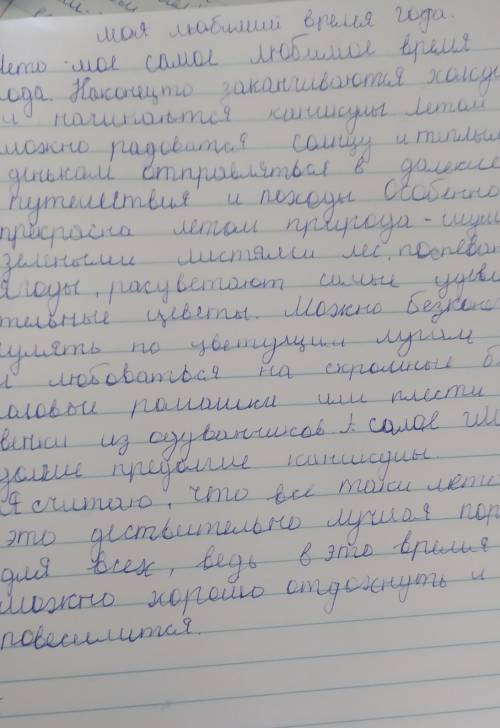 моя любимий время года.
Лето мое самое любимое время
года. Наконецто заканчиваются холод
и начинаются каникулы летом
можно радоватся солнцу и теплым
денькам отправляться в далекие
путешествия и походы Особенно
прекрасна летом природа - шум
зелеными листями лес, поспеваю
ягоды, расцветают самые удеви
тельные цветы. Можно безкон
гулять по цветущим лугам
и любоваться на скромные б
ромашки или плести
венки из одуванчиков А самое
долгие предолгие каникулы.
Я считаю, что все таки лето
это дествительно лучшая пор
для всех, ведь в это время
можно хорошо отдохнуть и
повеселится.